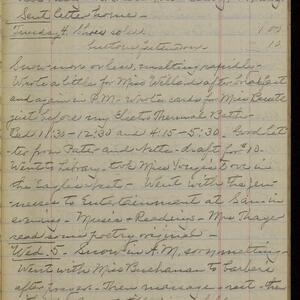 Sent letter home. —
Tweed & Shoes soled 1 00
10
Snow more or less, melting rapidly—
Wrote a little for Miss Willard after breakfast
and again in P.M. Wrote cards for Miss
just before my Electro Thermal Bath—
11:30 – 12:30 and 4:15 – 5:30. Good let-
ter from Pater and Nettie – draft for $10.
Went to Library. took Miss Young's
the Eagles – Went with the
to Entertainment at San. in
evening. Music & Readings – Mrs Thayer
read some poetry original –
Wed. 5 – Snow in A.M. soon melting –
Went with Miss Buchanan to
after prayers. Then massage – rest – then